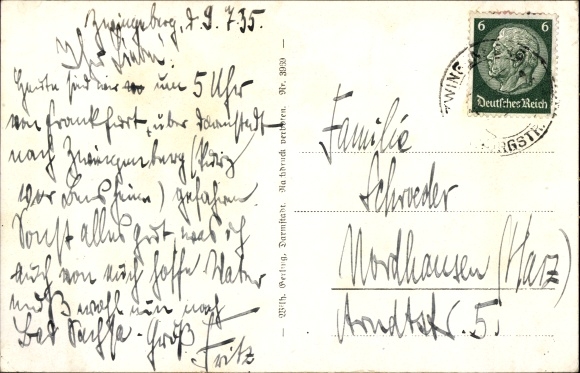 Zwingenberg, d 9.7.35.
Ihr Lieben!
Heute sind wir um 5 Uhr
von Frankfurt, über Darmstadt
nach Zwingenberg (kurz
vor Bensheim) gefahren.
Sonst alles gut, was ich
auch von euch hoffe. Vater
muß wohl nun nach
Bad Sachsa. Gruß
Fritz
— Wilh. Gerling, Darmstadt. Nachdruck verboten. Nr. 3939 —
6 6
Deutsches Reich
ZWING
RGSTR
Familie
Schroeder
Nordhausen (Harz)
Arndtstr. 5.